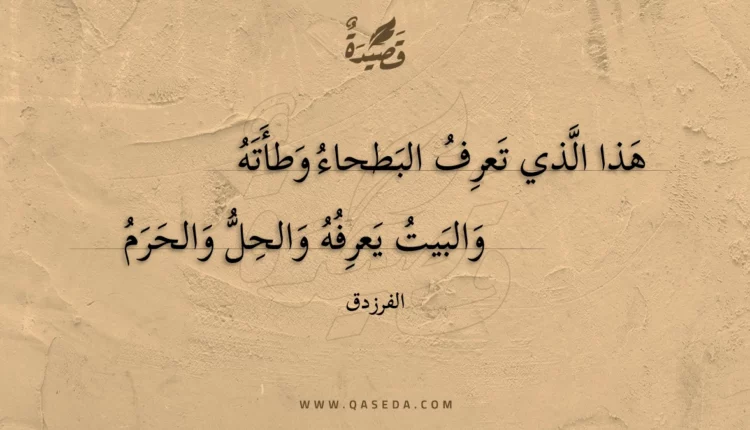 قَصِيدَةٌ
هَذا الَّذي تَعرِفُ البَطحاءُ وَطأَتَهُ
وَالبَيتُ يَعرِفُهُ وَالحِلُّ وَالحَرَمُ
الفرزدق
WWW.QASEDA.COM